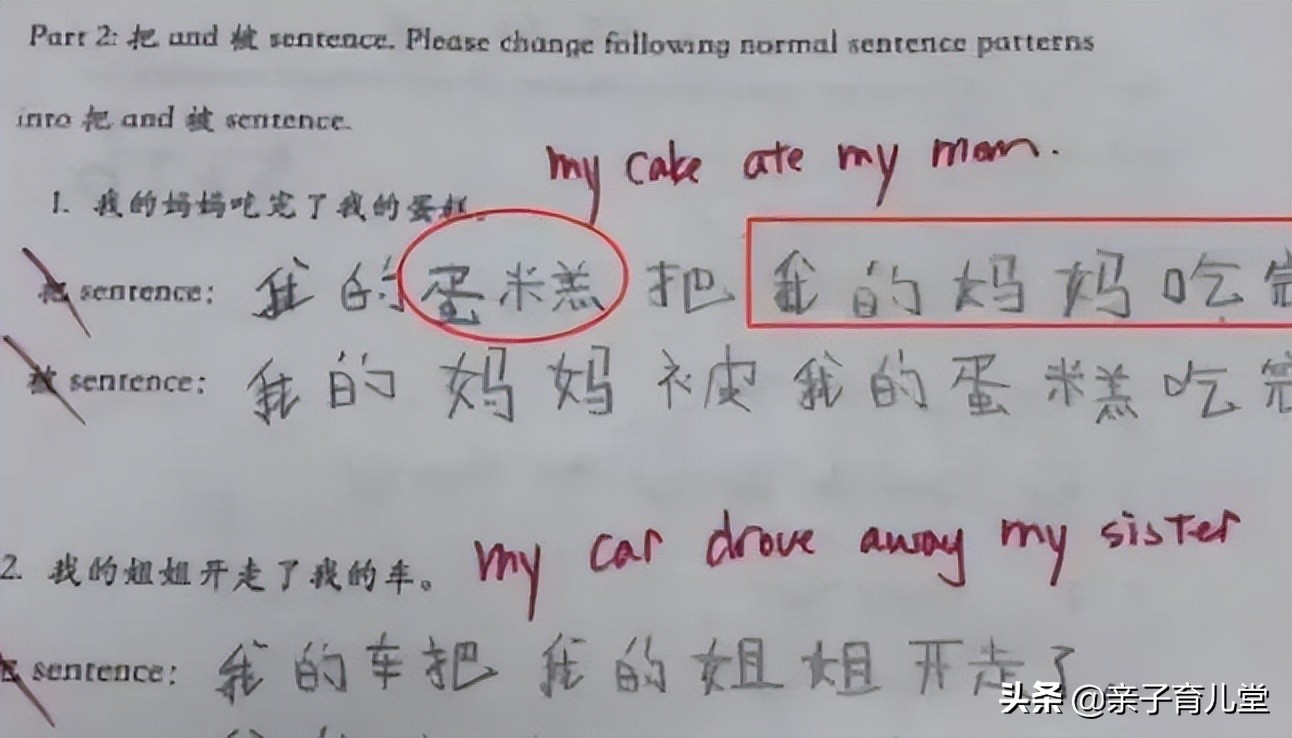 Part 2: 把 and 被 sentence. Please change following normal sentence patterns
into 把 and 被 sentence.
my cake ate my mom.
1. 我的妈妈吃完了我的蛋糕。
把 sentence: 我的蛋米糕把我的妈妈吃完
被 sentence: 我的妈妈被我的蛋米糕吃完
my car drove away my sister
2. 我的姐姐开走了我的车。
sentence: 我的车把我的姐姐开走了
头条 @亲子育儿堂